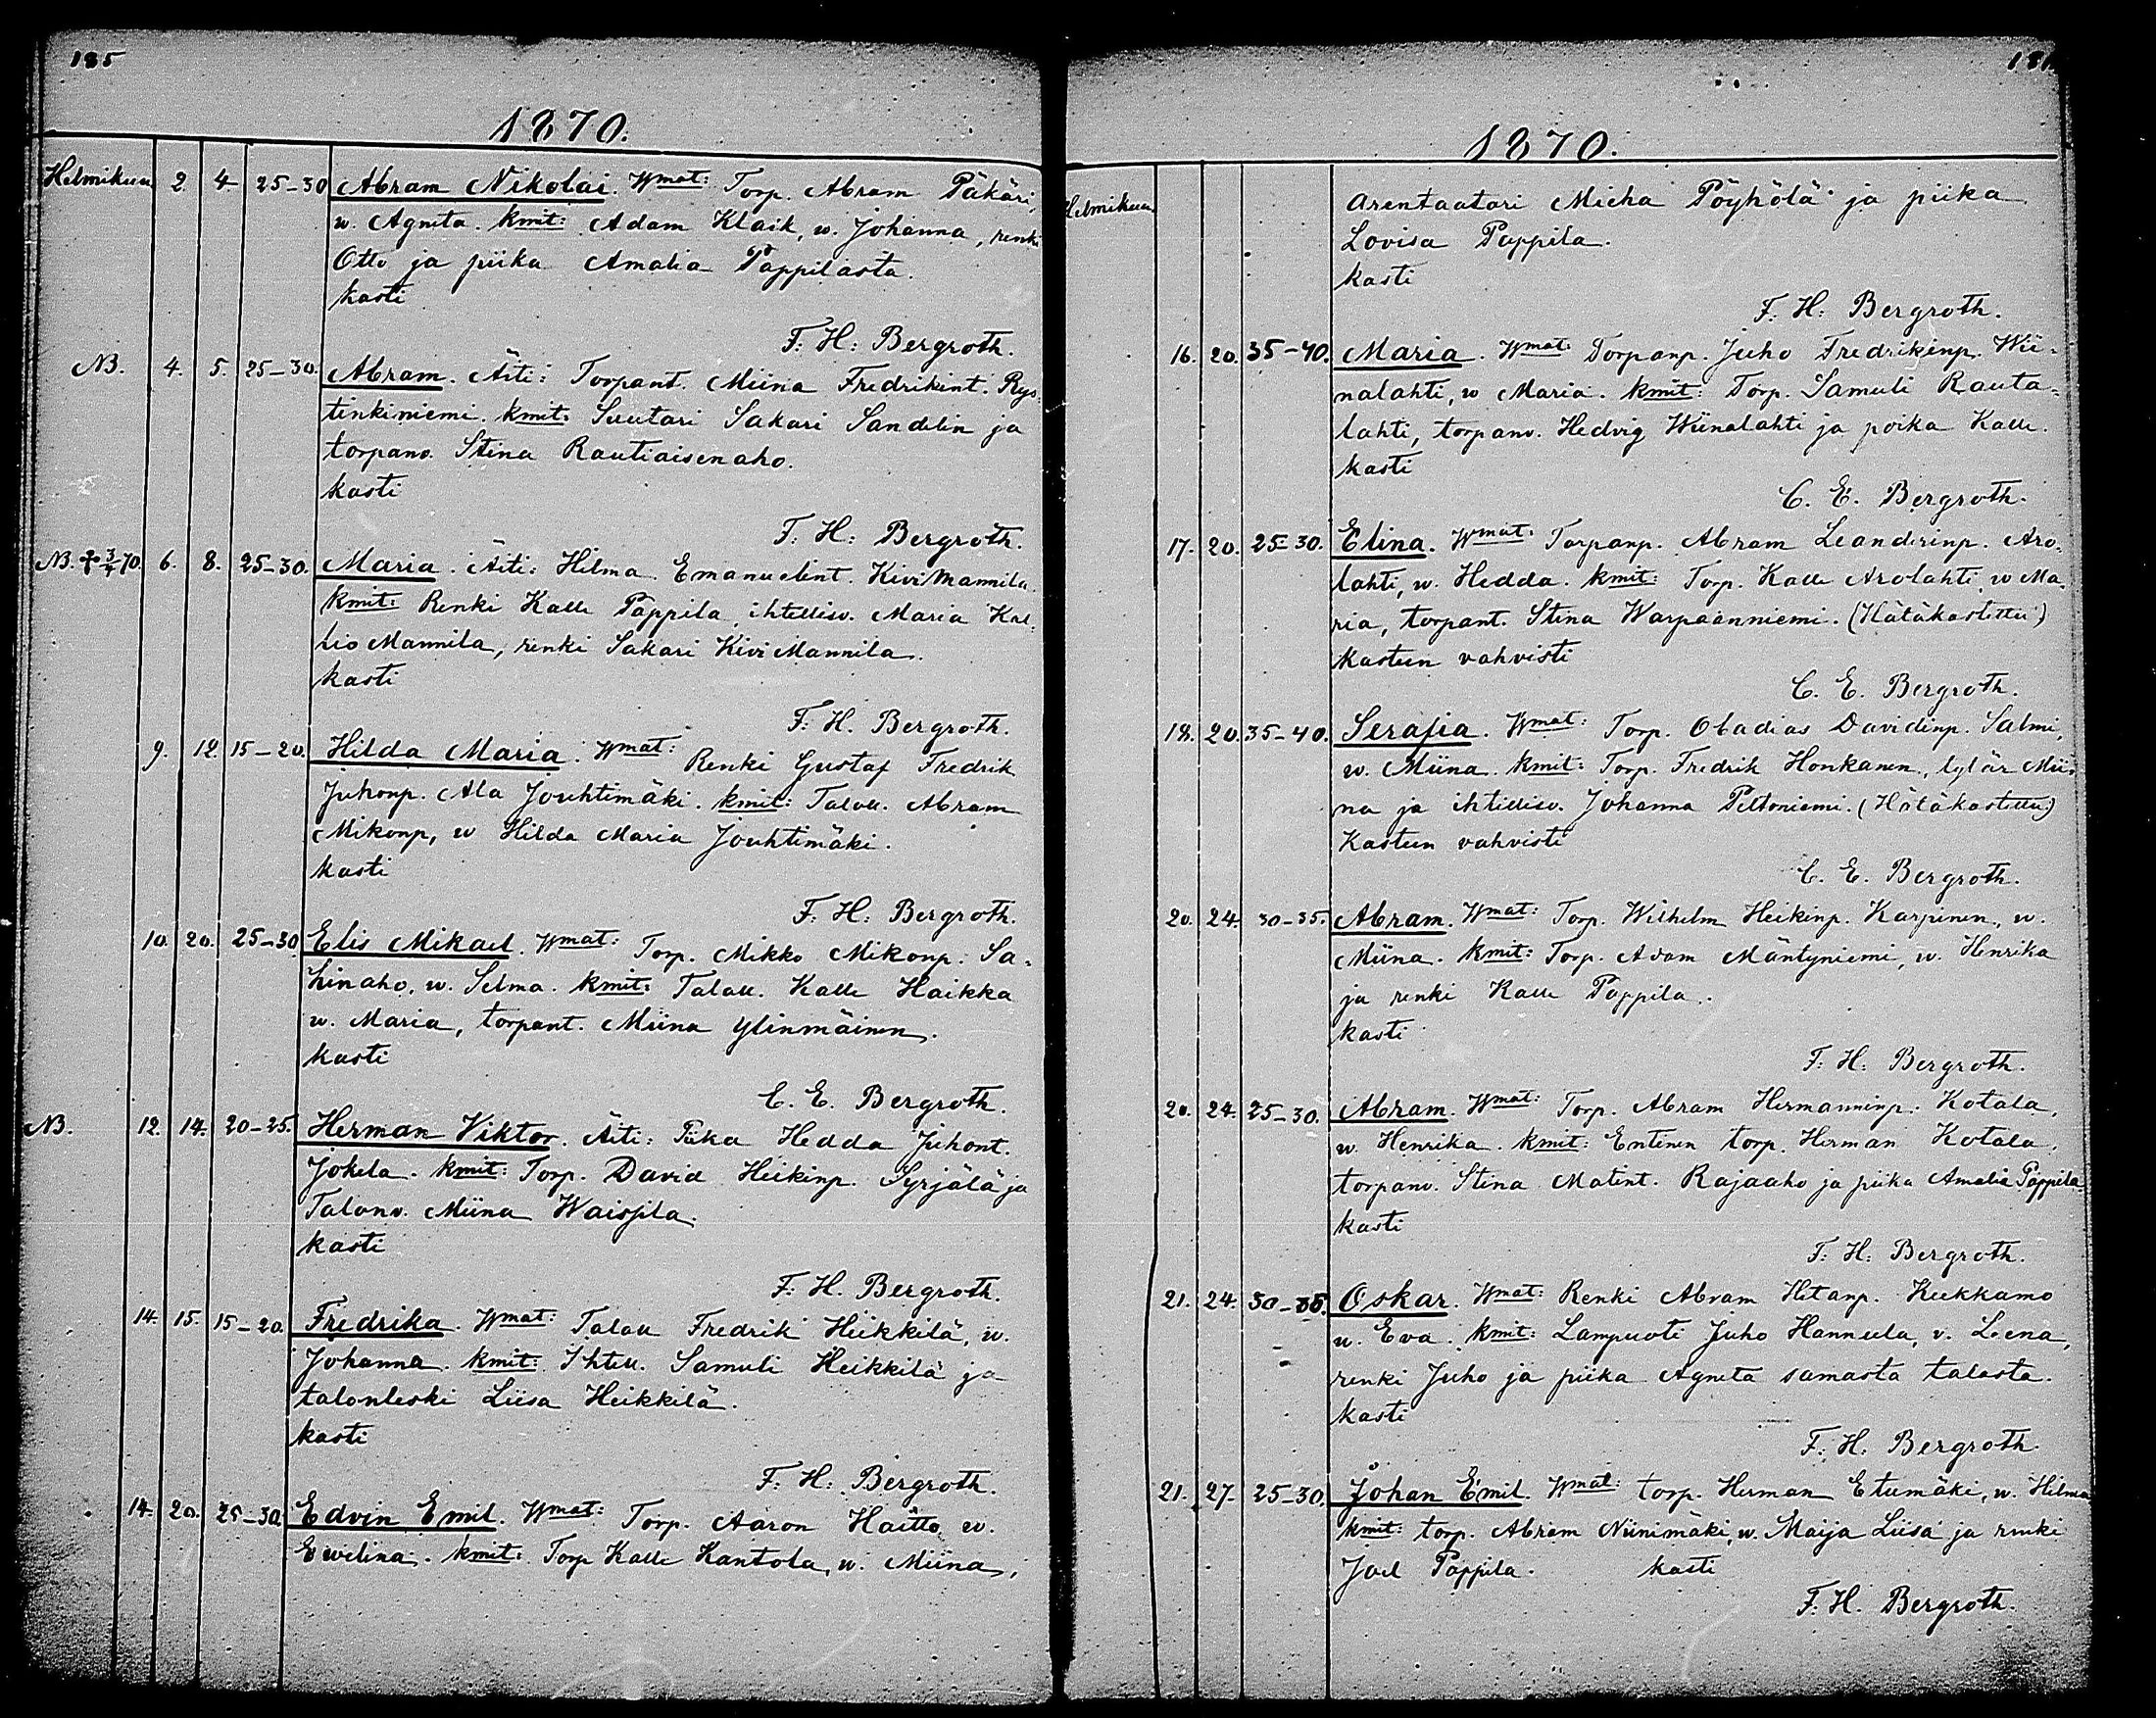 185
1870.
Helmikuu 2. 4. 25-30 Abram Nikolai. Wmat: Torp. Abram Päkäri,
w. Agneta. kmit: Adam Klaik, w. Johanna, renki
Otto ja piika Amalia Pappilasta.
kasti
F. H. Bergroth.
NB. 4. 5. 25-30. Abram. Äiti: Torpant. Miina Fredrikint. Rys-
tinkiniemi. kmit: Suutari Sakari Sandelin ja
torpanv. Stina Rautiaisenaho.
kasti
F. H. Bergroth.
NB. 70. 6. 8. 25-30. Maria. Äiti: Hilma Emanuelint. KiviMannila.
kmit: Renki Kalle Pappila, ihtellisv. Maria Kal-
lioMannila, renki Sakari KiviMannila.
kasti
F. H. Bergroth.
9. 12. 15-20. Hilda Maria. Wmat: Renki Gustaf Fredrik
Juhonp. Ala Jouhtimäki. kmit: Talall. Abram
Mikonp, w Hilda Maria Jouhtimäki.
kasti
F. H. Bergroth.
10. 20. 25-30 Elis Mikael. Wmat: Torp. Mikko Mikonp. Sa-
hinaho, w. Selma. kmit: Talall. Kalle Haikka
w. Maria, torpant. Miina Ylinmäinen.
kasti
C. E. Bergroth.
NB. 12. 14. 20-25. Herman Viktor. Äiti: Piika Hedda Juhont.
Jokela. kmit: Torp. David Heikinp. Syrjälä ja
Talonv. Miina Waispila.
kasti
F. H. Bergroth.
14. 15. 15-20. Fredrika. Wmat: Talall Fredrik Heikkilä, w.
Johanna. kmit: Ihtell. Samuli Heikkilä ja
talonleski Liisa Heikkilä.
kasti
F. H. Bergroth.
14. 20. 25-30. Edvin Emil. Wmat: Torp. Aaron Haitto, w.
Ewelina. kmit: Torp Kalle Kantola, w. Miina,
1870.
Helmikuu
arentaatari Micha Pöyhölä ja piika
Lovisa Pappila.
kasti
F. H. Bergroth.
16. 20. 35-40. Maria. Wmat: Torpanp. Juho Fredrikinp. Wii-
nalahti, w Maria. kmit: Torp. Samuli Rauta-
lahti, torpanv. Hedvig Wiinalahti ja poika Kalle.
kasti
C. E. Bergroth.
17. 20. 25-30. Elina. Wmat: Torpanp. Abram Leanderinp. Aro-
lahti, w. Hedda. kmit: Torp. Kalle Arolahti, w Ma-
ria, torpant. Stina Warpaanniemi. (Hätäkastettu)
Kasteen vahvisti
C. E. Bergroth.
18. 20. 35-40. Serafia. Wmat: Torp. Obadias Davidinp. Salmi,
w. Miina. kmit: Torp. Fredrik Honkanen, tytär Mii-
na ja ihtellisv. Johanna Peltoniemi. (Hätäkastettu)
Kasteen vahvisti
C. E. Bergroth.
20. 24. 30-35. Abram. Wmat: Torp. Wilhelm Heikinp. Karpinen, w.
Miina. kmit: Torp. Adam Mäntyniemi, w. Henrika
ja renki Kalle Pappila.
kasti
F. H. Bergroth.
20. 24. 25-30. Abram. Wmat: Torp. Abram Hermanninp. Kotala,
w. Henrika. kmit: Entinen torp. Herman Kotala,
torpanv. Stina Matint. Rajaaho ja piika Amalia Pappila
kasti
F. H. Bergroth.
21. 24. 30-35. Oskar. Wmat: Renki Abram Hetanp. Kukkamo
w. Eva. kmit: Lampuoti Juho Hannula, v. Leena,
renki Juho ja piika Agneta samasta talosta.
kasti
F. H. Bergroth.
21. 27. 25-30. Johan Emil. Wmat: torp. Herman Etumäki, w. Hilma
kmit: torp. Abram Niinimäki, w. Maija Liisa ja renki
Joel Pappila. kasti
F. H. Bergroth.